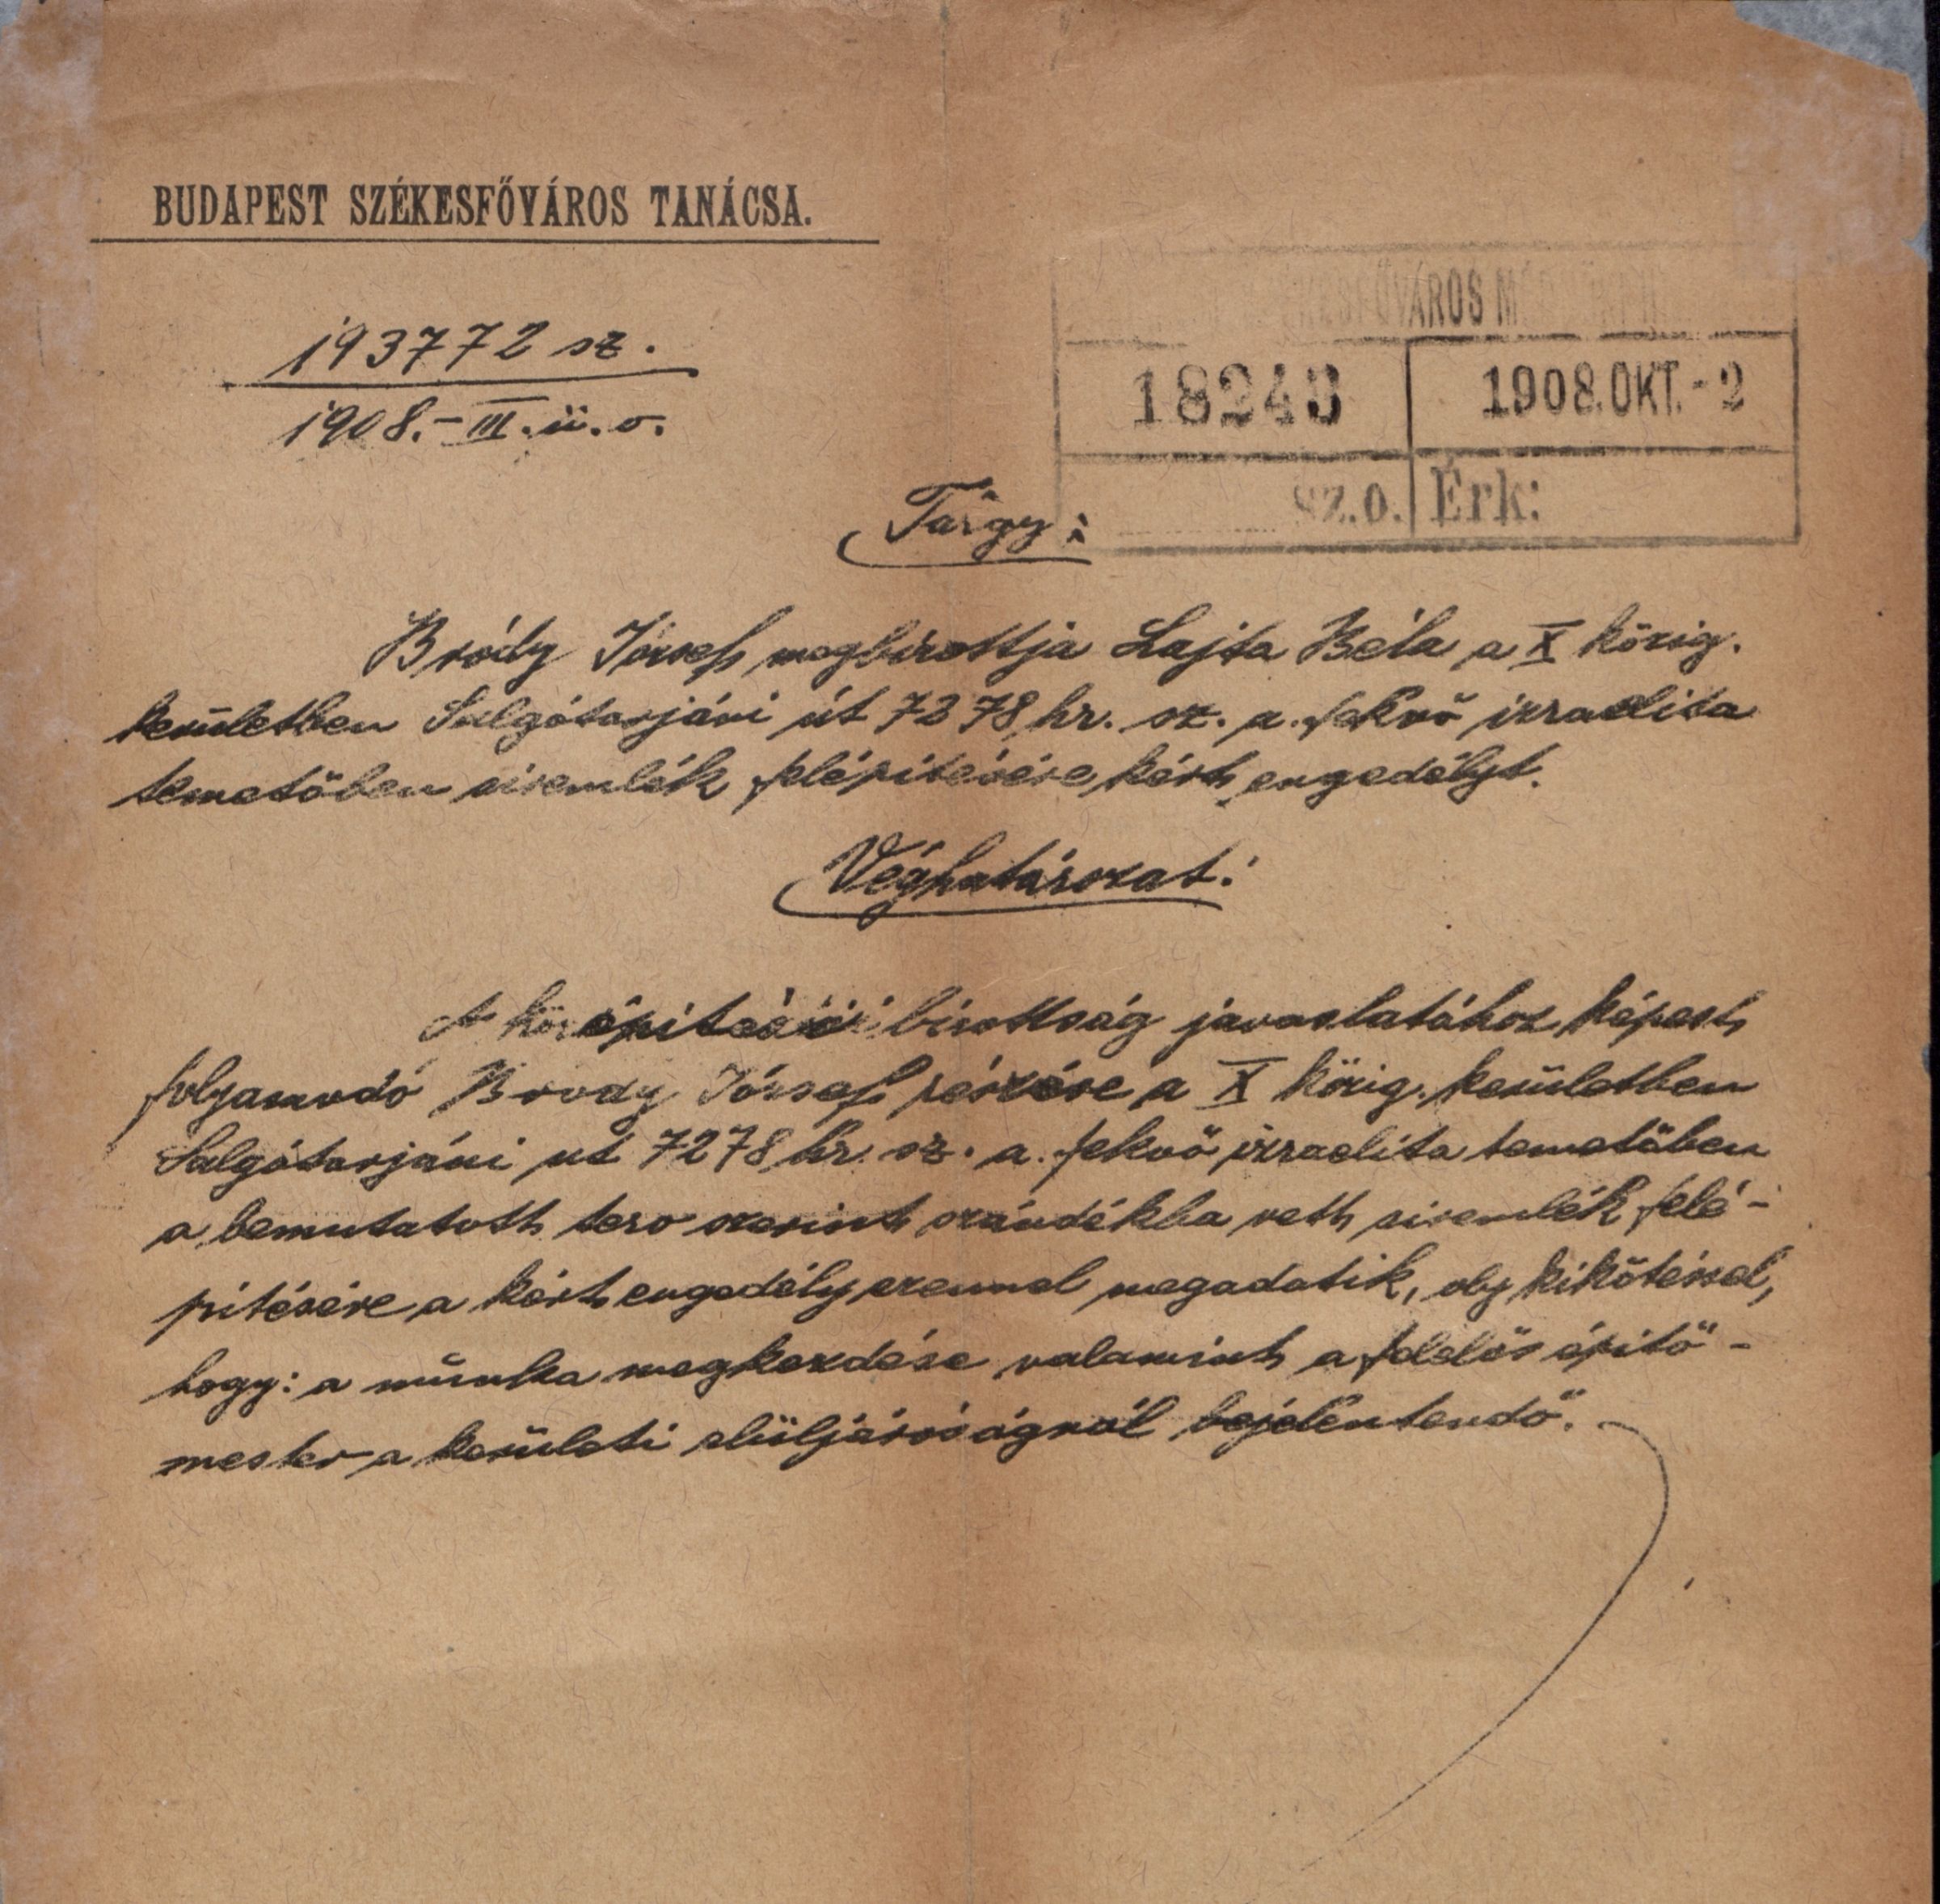 BUDAPEST SZÉKESFŐVÁROS TANÁCSA.
193772 sz.
1908.-III. ü. o.
KESFŐVÁROS
1908.OKT.-2
sz.o. Érk:
Tárgy:
Bródy József megbizottja Lajta Béla a X közig.
kerületben Salgótarjáni út 7278 hr. sz. a. fekvő izraelita
temetőben siremlék felépitésére kért engedélyt.
Véghatározat:
A középitési bizottság javaslatához képest
folyamodó Brody József részére a X közig. kerületben
Salgótarjáni ut 7278 hr. sz. a. fekvő izraelita temetőben
a bemutatott terv szerint szándékba vett siremlék felé-
pitésére a kért engedély ezennel megadatik, oly kikötéssel,
hogy: a munka megkezdése valamint a felelős épitő-
mester a kerületi elüljáróságnál bejelentendő.